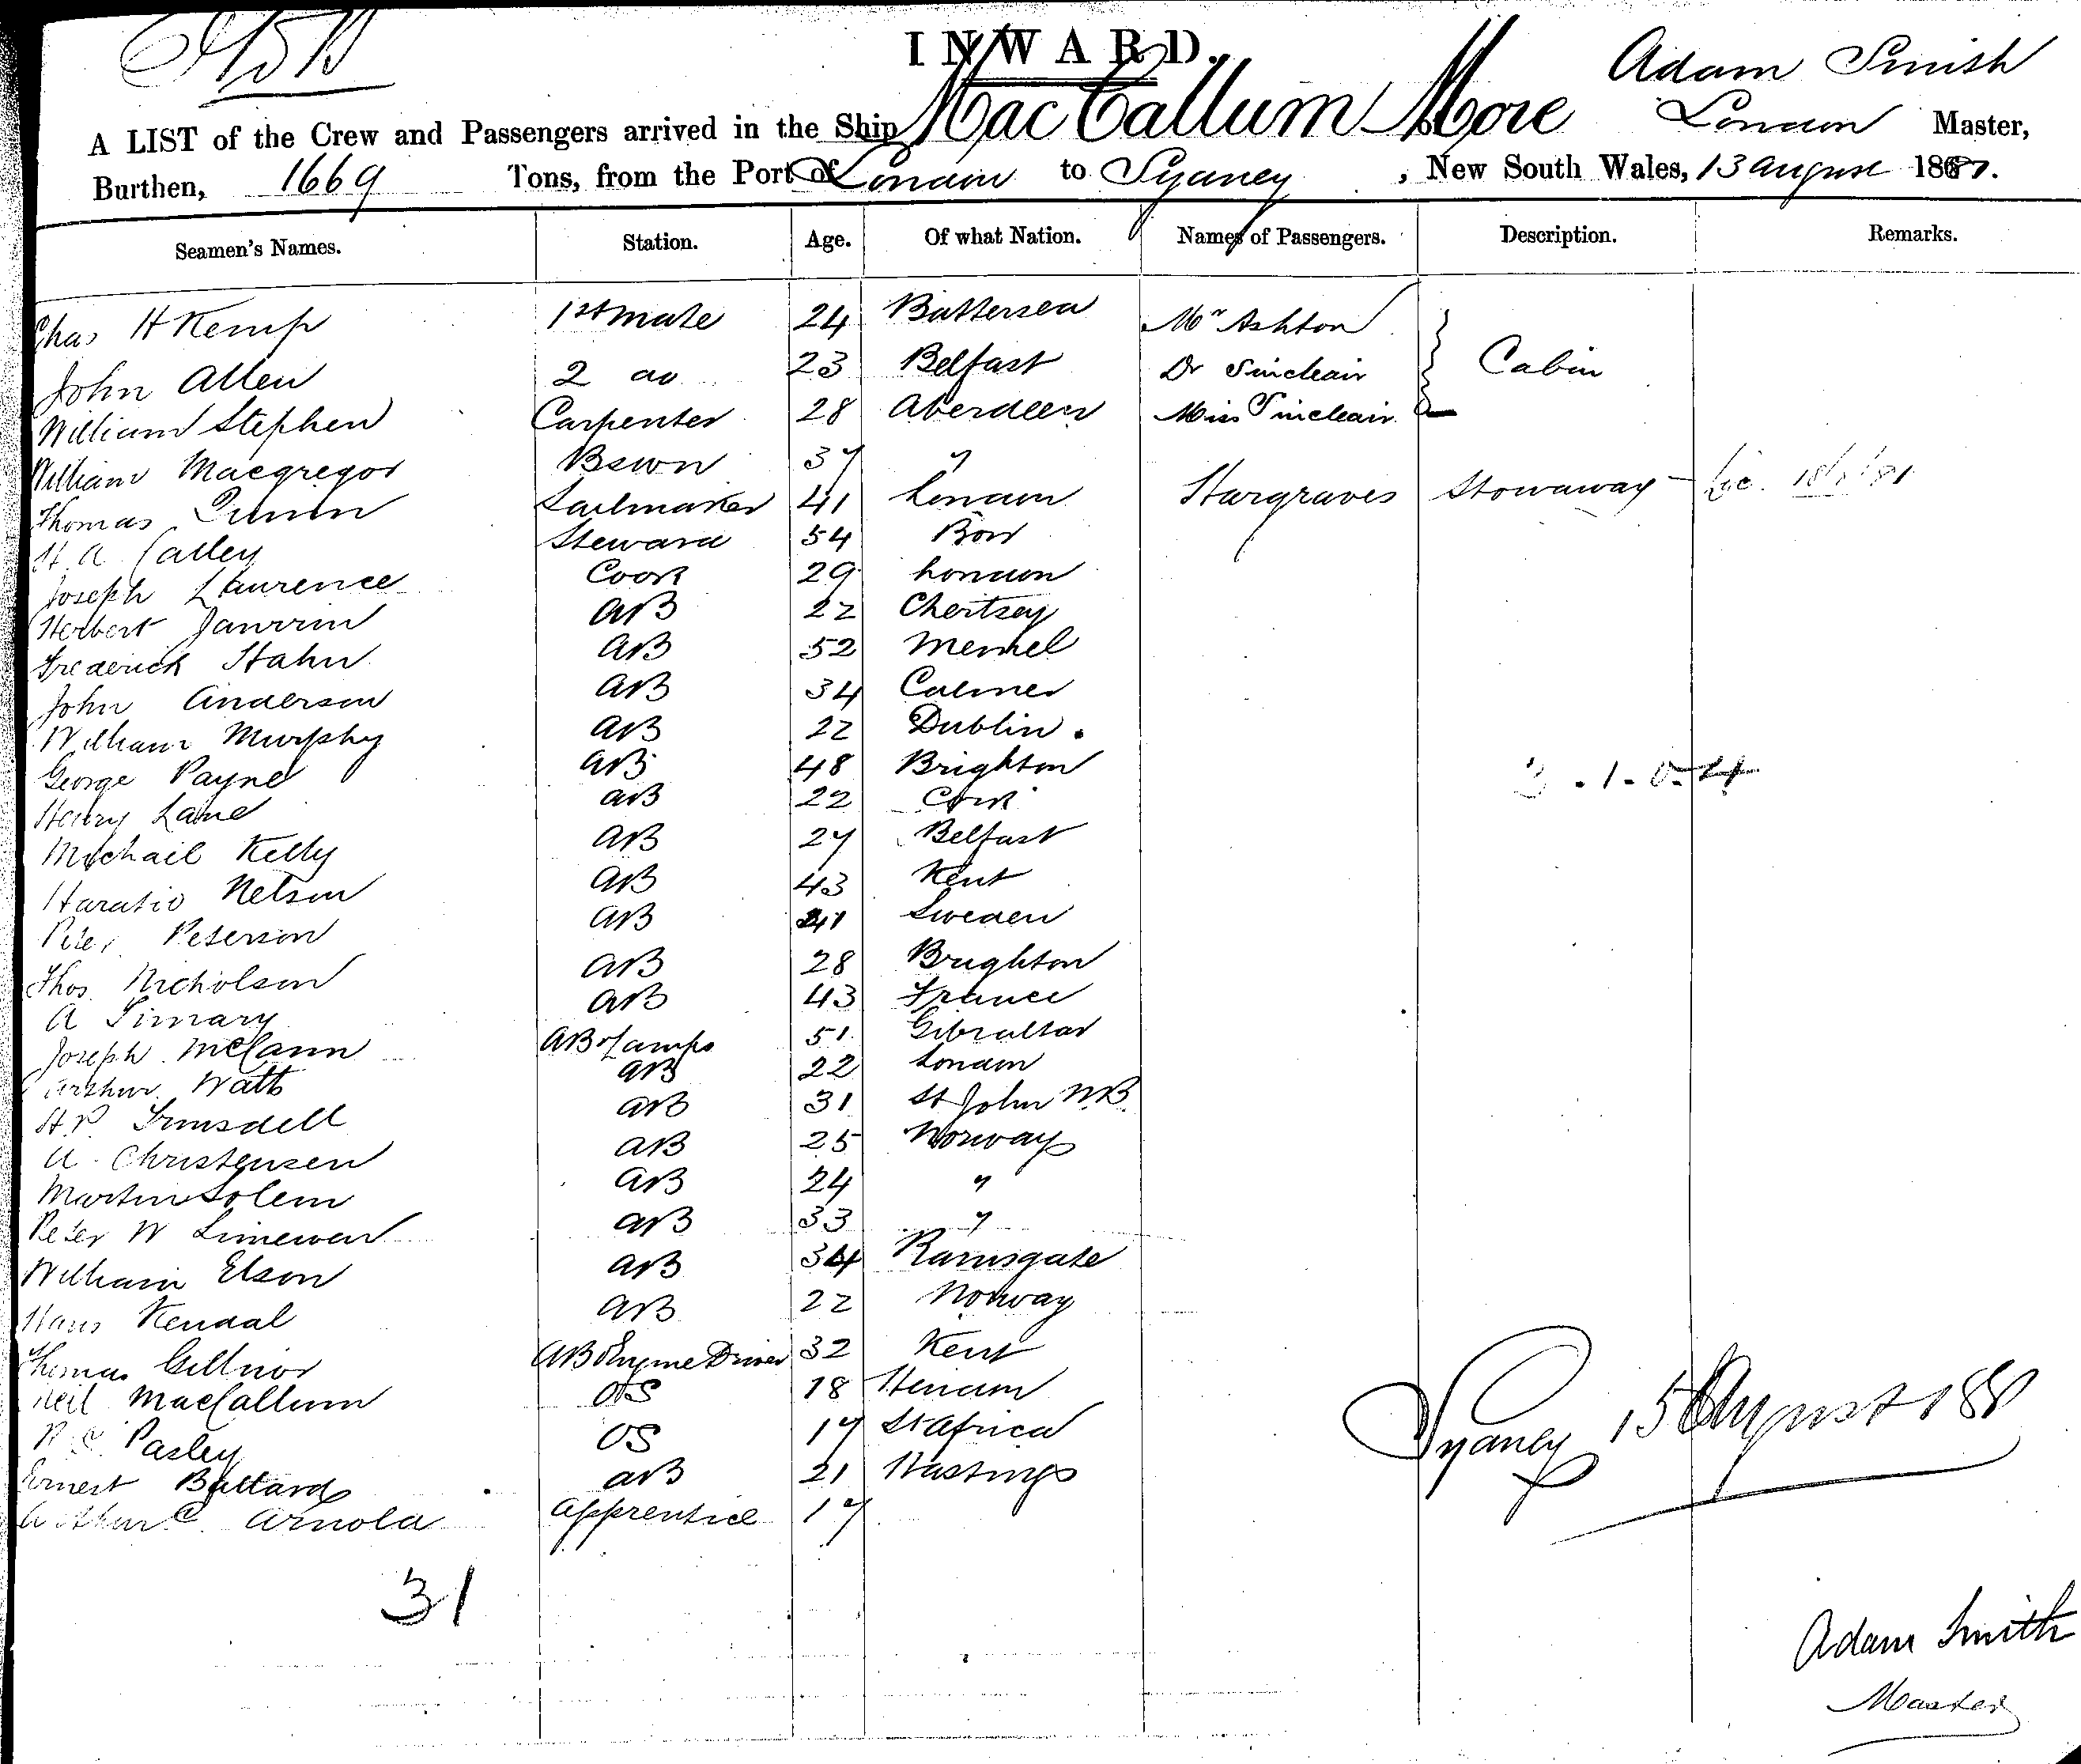 INWARD.
Adam Smith
A LIST of the Crew and Passengers arrived in the Ship MacCallum More of London Master,
Burthen, 1669 Tons, from the Port of London to Sydney, New South Wales, 13 august 1881.
Seamen's Names. Station. Age. Of what Nation. Names of Passengers. Description. Remarks.
Chas H Kemp 1st mate 24 Battersea Mr Ashton
John Allen 2 do 23 Belfast Dr Sinclair Cabin
William Stephen Carpenter 28 Aberdeen Miss Sinclair
William Macgregor Bswn 37 "
Thomas Sailmaker 41 London Hargraves Stowaway
H. A. Steward 54 Bow
Joseph Laurence Cook 29 London
Herbert Janvrin AB 22 Chertsey
Frederick Hahn AB 52 Memel
John Anderson AB 34 Calmer
William Murphy AB 22 Dublin.
George Payne AB 48 Brighton
Henry Lane AB 22 Cork
Michail Kelly AB 27 Belfast
Haratio Nelson AB 43 Kent
Peter Peterson AB Sweden
Thos. Nicholson AB 28 Brighton
A AB 43 France
Joseph McCann AB & Lamps 51 Gibraltar
Arthur Watts AB 22 London
H.P. AB 31 St John N.B.
A. Christensen AB 25 Norway
Martin Solem AB 24 "
Peter W AB 33 "
William Elson AB 34 Ramsgate
Hans Kendal AB 22 Norway
Thomas AB & Engine Driver 32 Kent
Neil MacCallum OS 18
Pasley OS 17 St Africa
Ernest Ballard AB 21 Hastings
Arthur C. Arnold apprentice 17
Sydney 15 August 1881
31
Adam Smith
Master